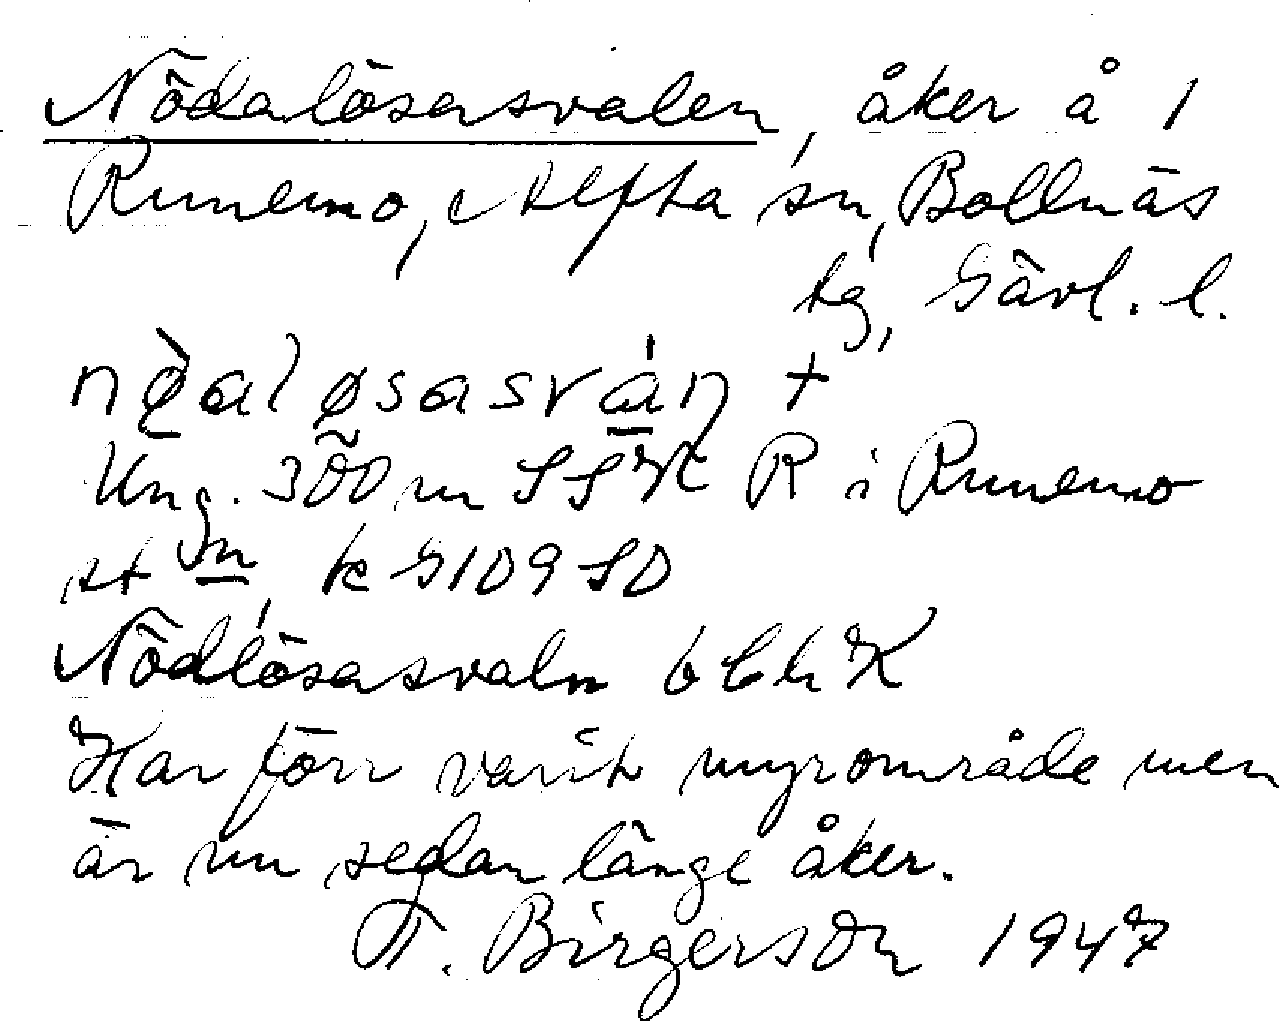 Nödalösasvalen, åker å 1
Runemo, Alfta sn, Bollnäs
tg, Gävl. l.
Ung. 300 m SSV R i Runemo
st m, k G109 SO
Nödlösasvaln
Har förr varit myrområde men
är nu sedan länge åker.
F. Birgerson 1947